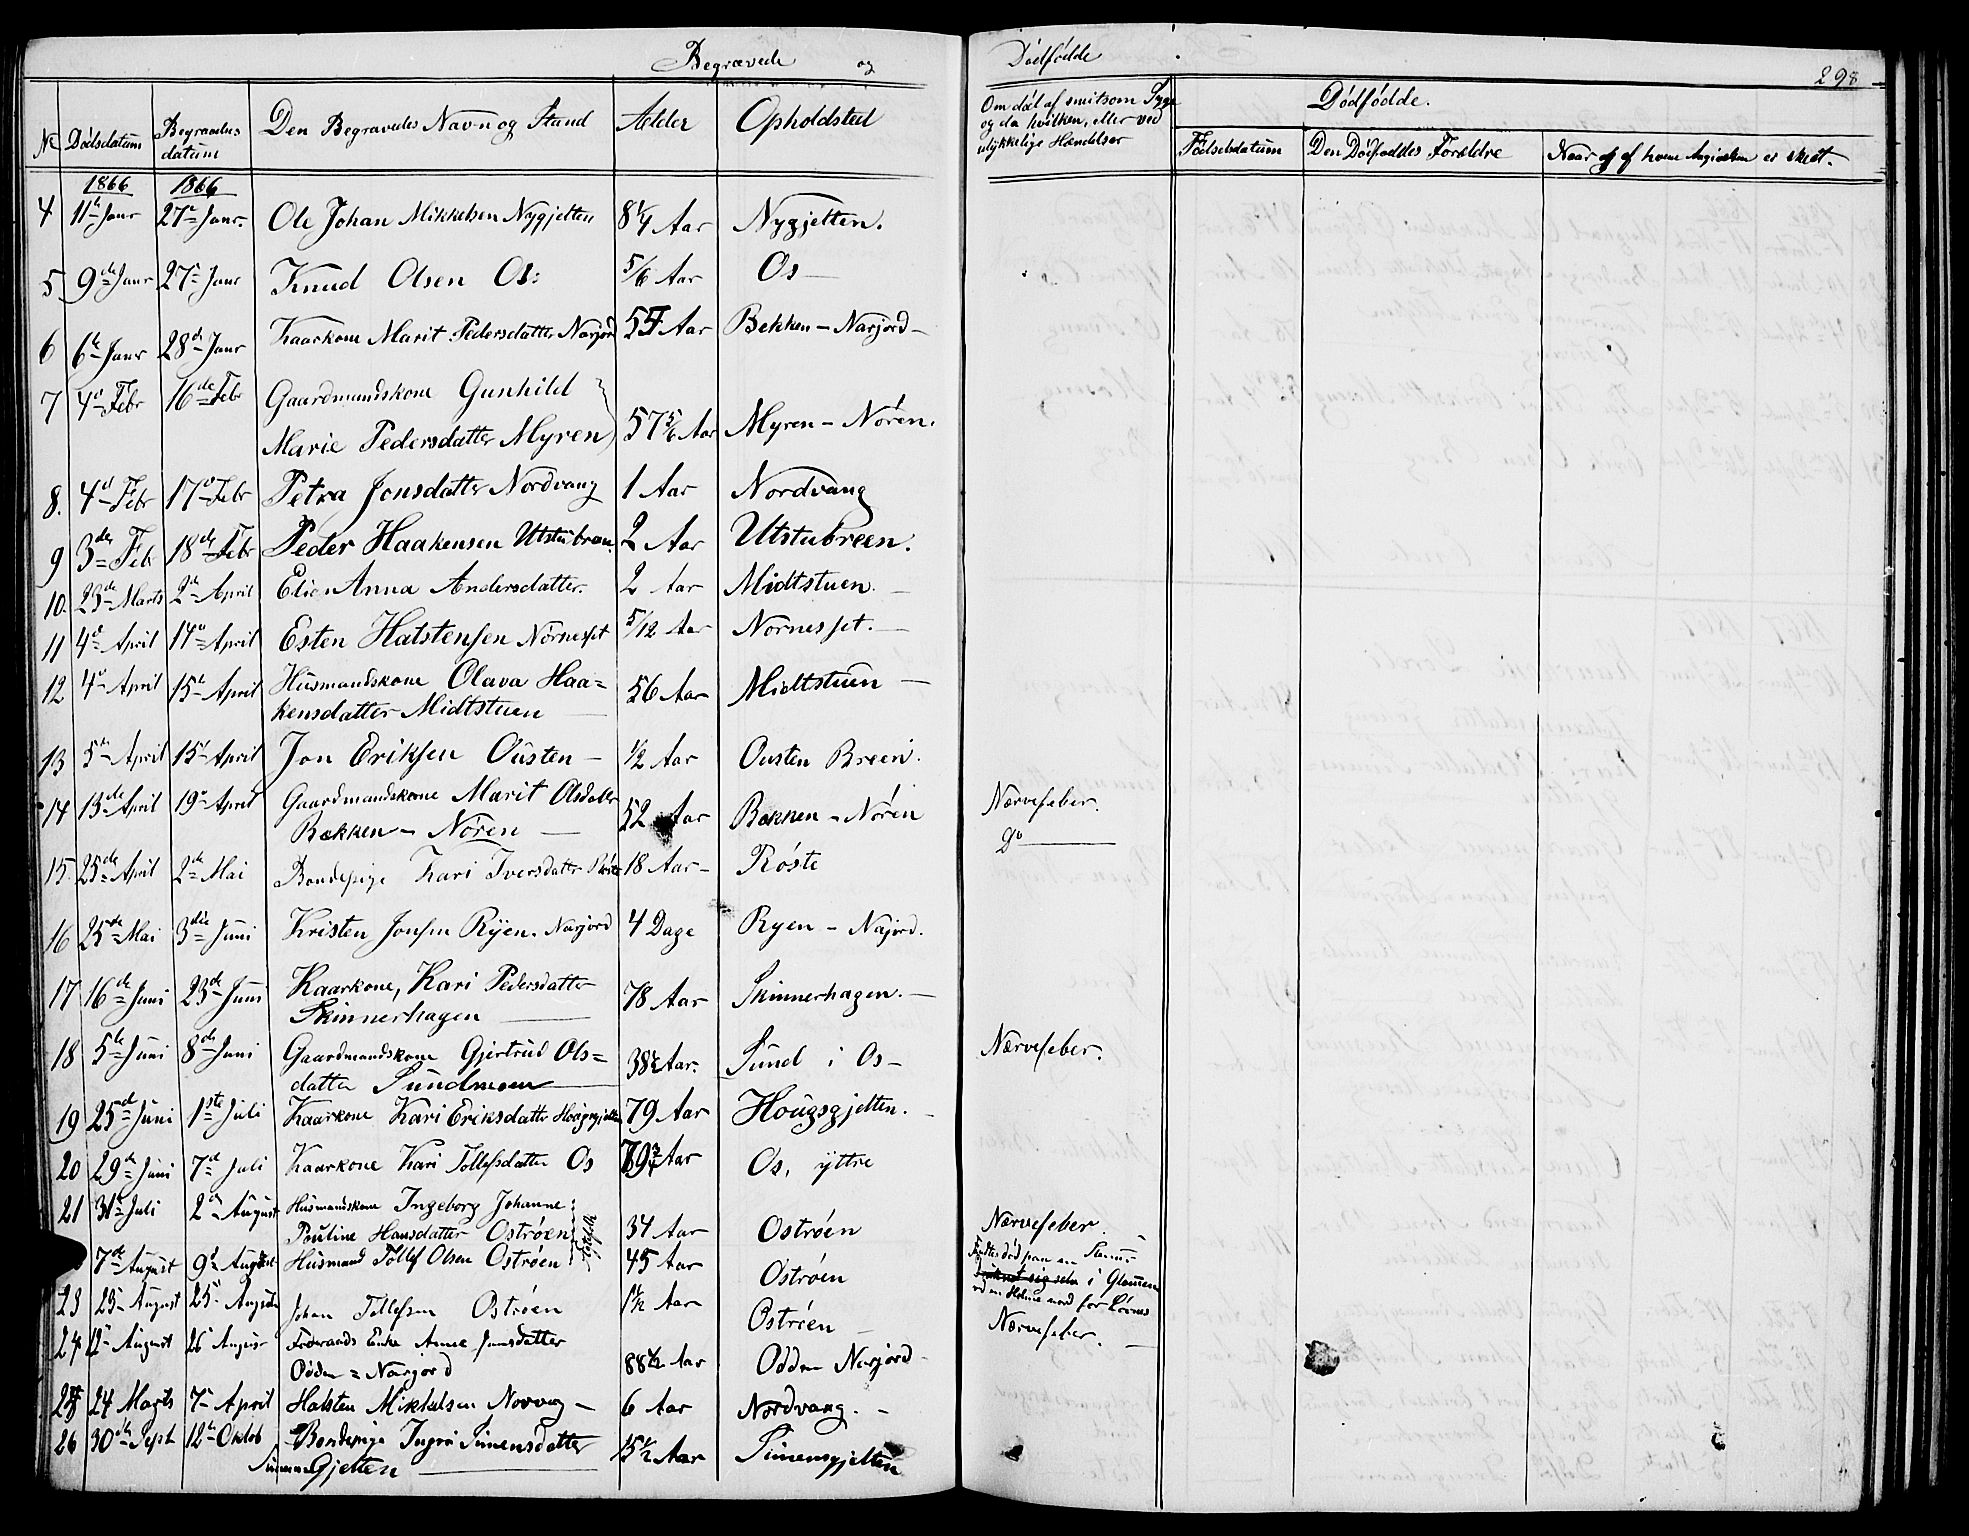 Begravede og Dödfödde
298
No Dödsdatum Begravelsesdatum Den Begravedes Navn og Stand Alder Opholdsted Om död af smitsom Syge og da hvilken, eller ved ulykkelige Hændelser
Dödfödde.
Födselsdatum Den Dödföddes Forældre Naar og af hvem Angivelsen er skeet.
1866 1866
4 11te Janr 27de Janr. Ole Johan Mikkelsen Nygjelten 8 1/4 Aar Nygjelten.
5 9de Janr 27de Janr Knud Olsen Os: 5/6 Aar Os
6 6te Janr 28de Janr Kaarkone Marit Pedersdatter Narjord Aar Bekken - Narjord -
7 4de Febr 16de Febr Gaardmandskone Gunhild
Marie Pedersdatter Myren 57 5/6 Aar Myren - Nören.
8. 4de Febr 17de Febr Petra Jonsdatter Nordvang 1 Aar Nordvang
9 3die Febr 18de Febr Peder Haakensen Utstubreen. 2 Aar Utstubreen.
10. 23de Marts 2den April Elien Anna Andersdatter. 2 Aar Midtstuen.
11 4de April 14de April Esten Halstensen Nörnesset 5/12 Aar Nörnesset.
12 4de April 15de April Husmandskone Olava Haa=
kensdatter Midtstuen 56 Aar Midtstuen
13 5te April 15de April Jon Eriksen Ousten 1/2 Aar Ousten Breen.
14 13de April 19de April Gaardmandskone Marit Olsdatter
Bækken - Nören 52 Aar Bækken - Nören Nervefeber.
15. 25de April 2den Mai Bondepige Kari Iversdatter Röste 18 Aar - Röste Do
16 25de Mai 3die Juni Kristen Jonsen Ryen. Narjord 4 Dage Ryen - Najord.
17 16de Juni 23de Juni Kaarkone, Kari Pedersdatter
Skinnerhagen 78 Aar Skinnerhagen.
18 5te Juni 8de Juni Gaardmandskone Gjertrud Ols=
datter Sundmoen 38 1/2 Aar. Sund i Os - Nervefeber.
19 25de Juni 1ste Juli Kaarkone Kari Eriksdatter Hougsgjelten 79 Aar Hougsgjelten.
20 29de Juni 7de Juli Kaarkone Kari Tollefsdatter Os Aar Os, yttre
21 31te Juli 2den August Husmandskone Ingeborg Johanne
Pouline Hansdatter Oströen 34 Aar Oströen Nervefeber.
7de August 9de August Husmand Tollef Olsen Oströen 45 Aar Oströen Fandtes död paa en i Glommen
ved en Holme nord for
23 23de August 25de August Johan Tollefsen Oströen 1 1/2 Aar Oströen Nervefeber.
24 12te August 26de August Enke Anne Jonsdatter
Odden = Narjord 88 1/2 Aar Odden Narjord
25 24 Marts 7de April Halsten Mikkelsen Norvang 6 Aar Nordvang.
26 30de Sept 12te Oktob Bondepige Ingri Simensdatter
Simens Gjelten 15 1/2 Aar Simensgjelten